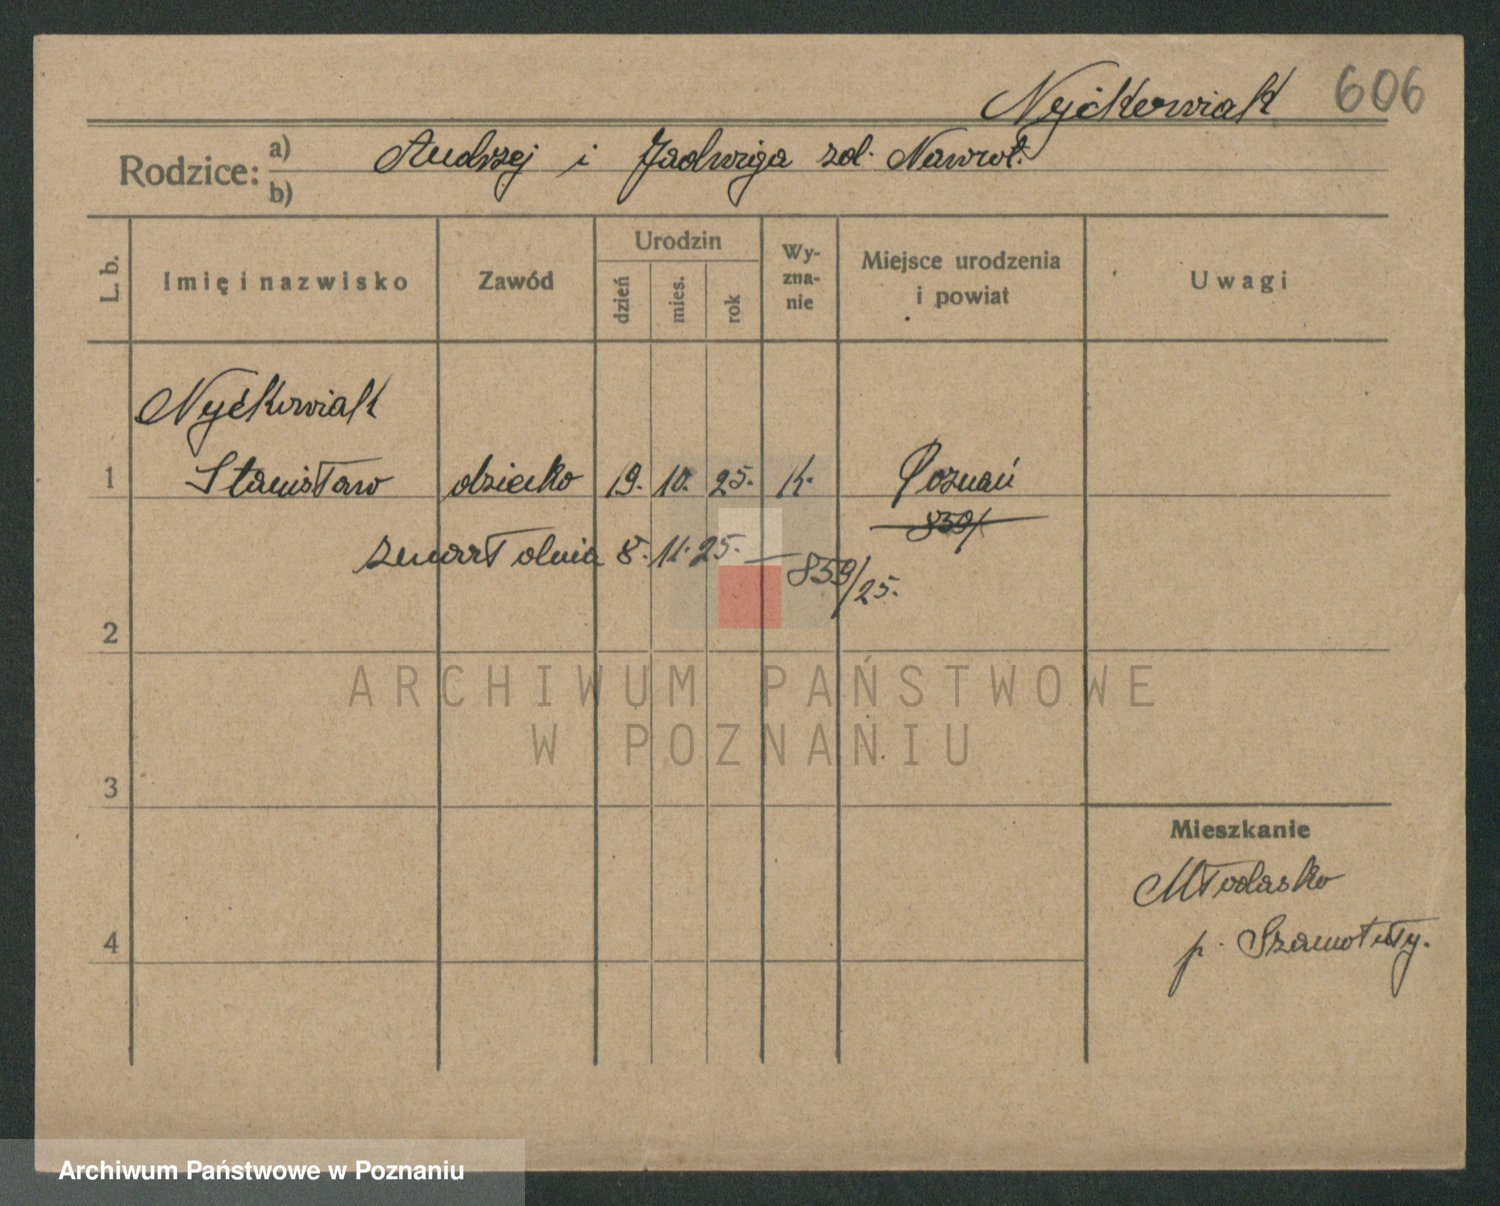 Nyćkowiak 606
Rodzice: a) Andrzej i Jadwiga zd. Nawrot.
b)
L. b. Imię i nazwisko Zawód Urodzin dzień mies. rok Wyznanie Miejsce urodzenia i powiat Uwagi
Nyćkowiak
1 Stanisław dziecko 19. 10. 25. k. Poznań
859/
zmarł dnia 8. 11. 25. — 859/25.
2
ARCHIWUM PAŃSTWOWE
W POZNANIU
3
Mieszkanie
Młodasko
4 p. Szamotuły.
Archiwum Państwowe w Poznaniu